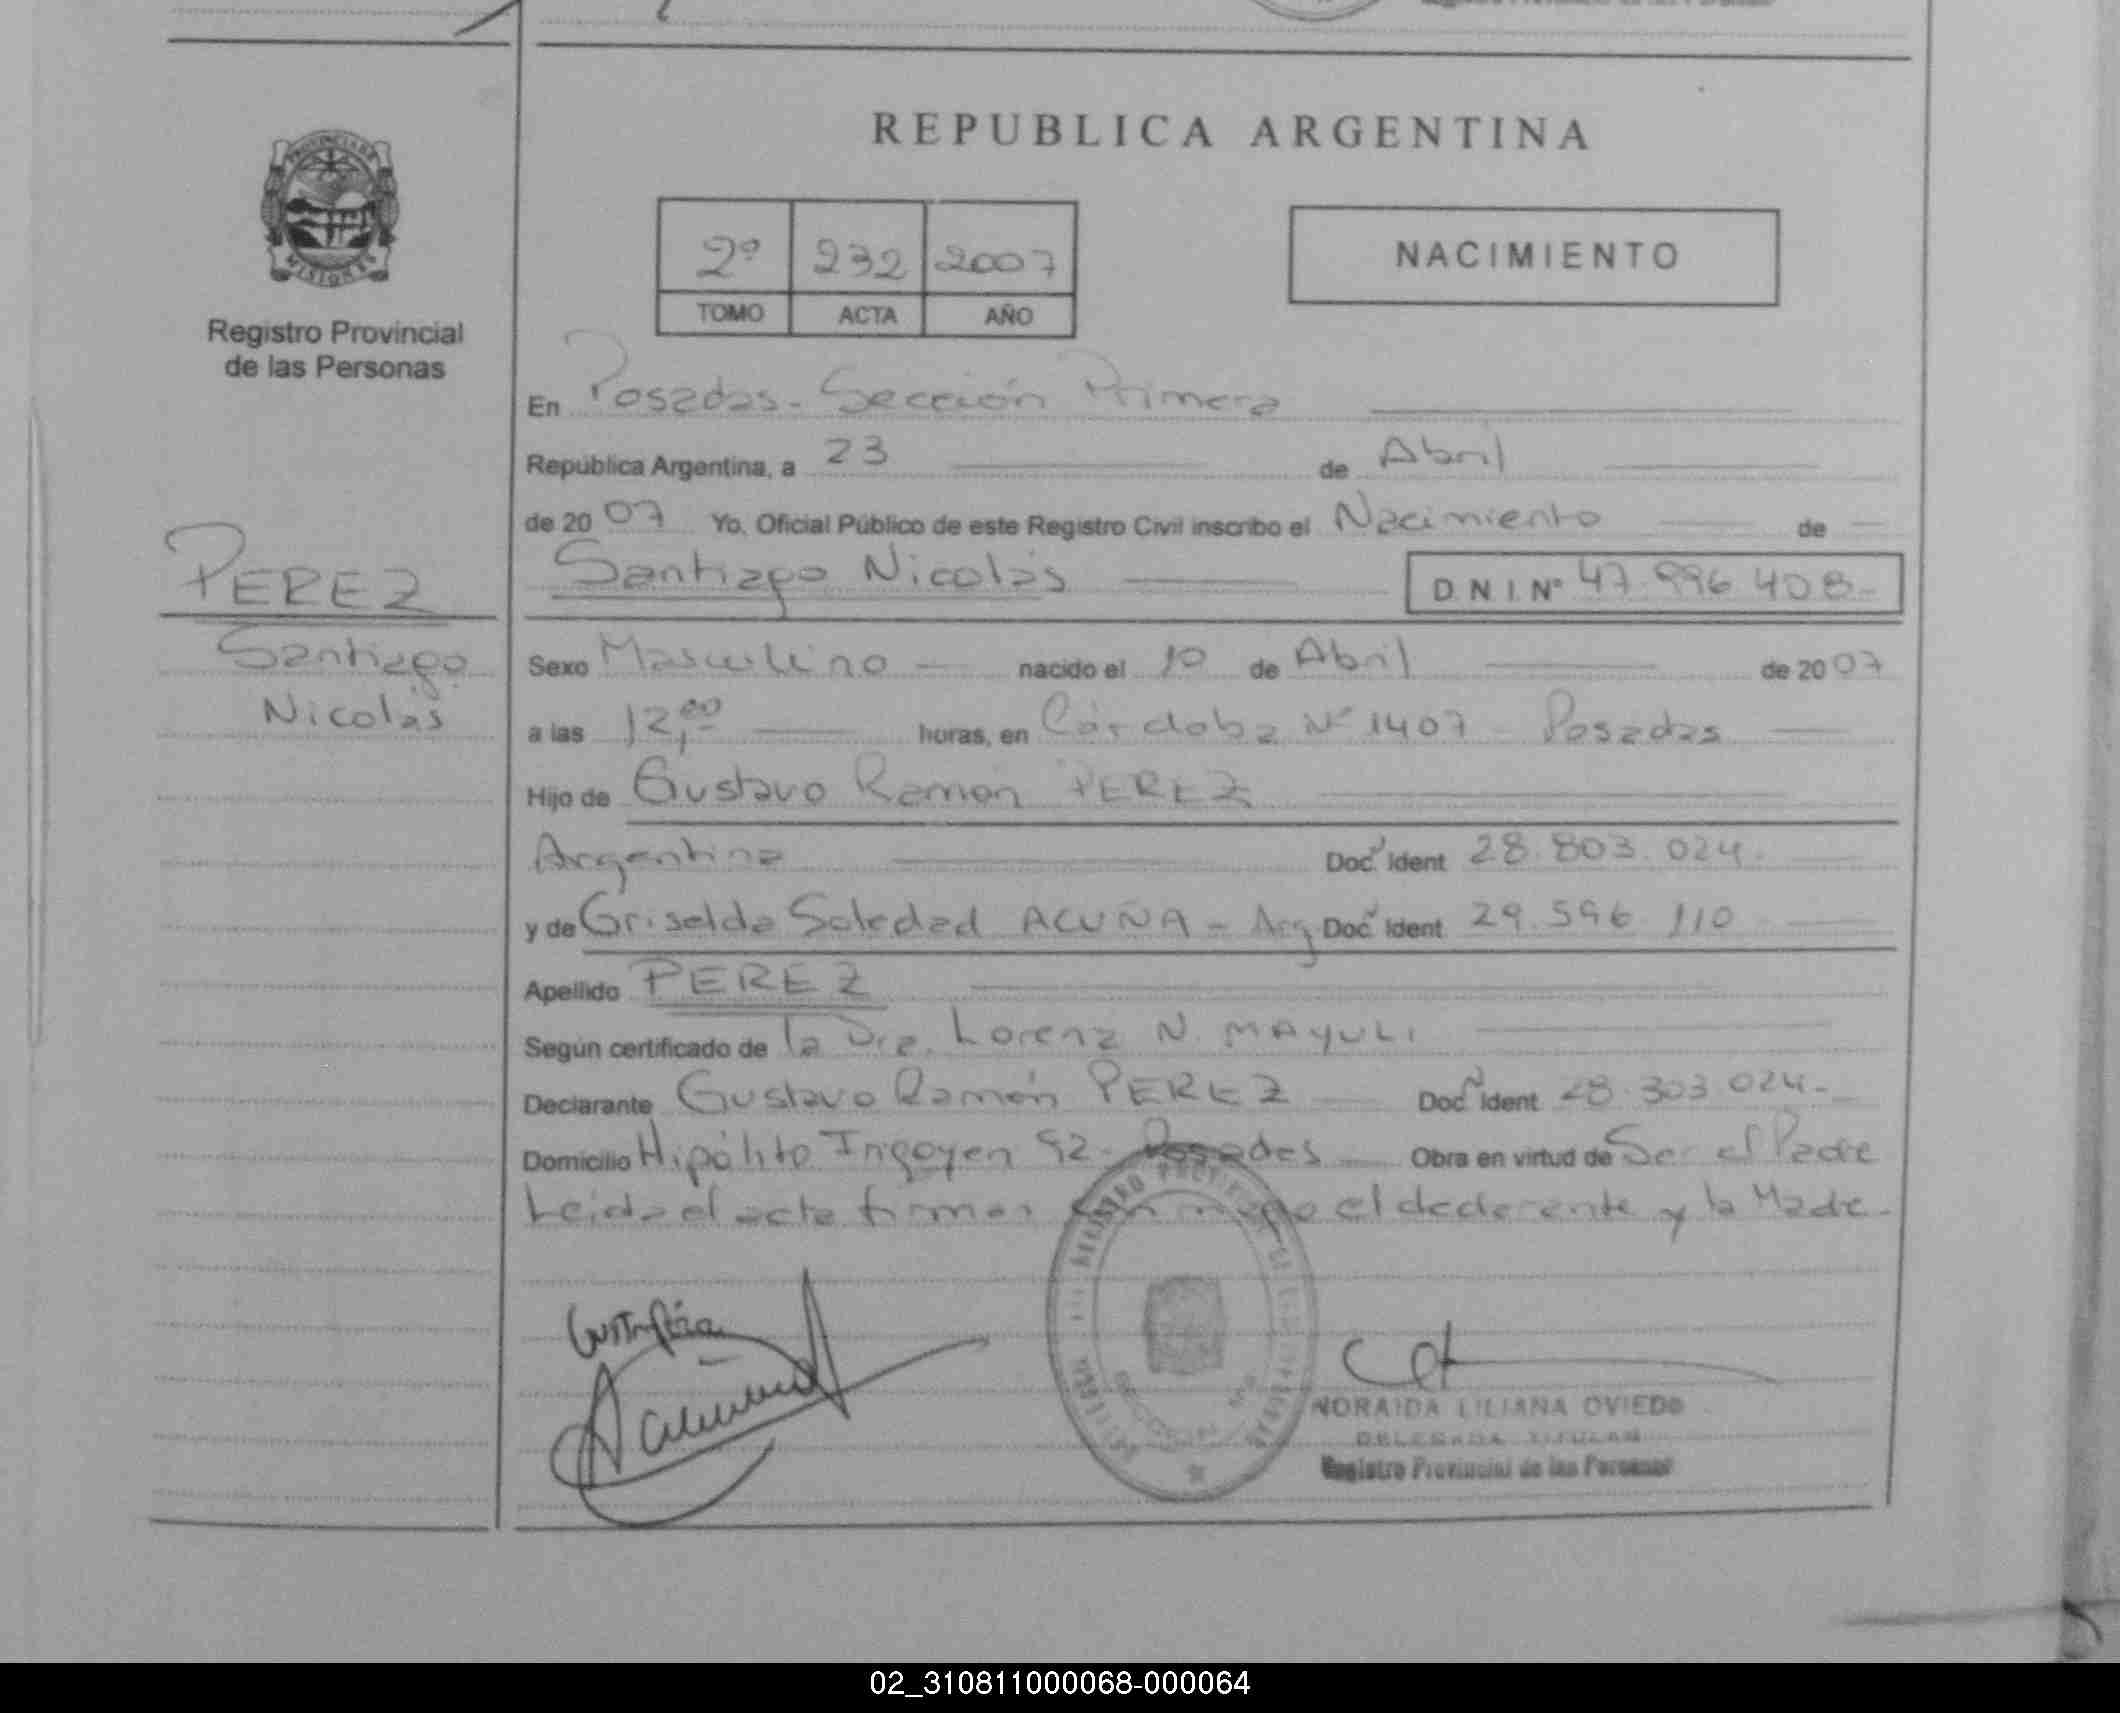 REPUBLICA ARGENTINA
PROVINCIA DE
MISIONES
Registro Provincial
de las Personas
2º 232 2007
TOMO ACTA AÑO
NACIMIENTO
PEREZ
Santiago
Nicolás
En Posadas - Sección Primera
República Argentina, a 23 de Abril
de 20 07 Yo, Oficial Público de este Registro Civil inscribo el Nacimiento de
Santiago Nicolás D.N.I.Nº 47.996.408-
Sexo Masculino nacido el 10 de Abril de 20 07
a las 12,00 horas, en Córdoba Nº 1407 - Posadas
Hijo de Gustavo Ramón PEREZ
Argentina Doc. Ident 28.803.024.
y de Griselda Soledad ACUÑA - Arg. Doc. Ident 29.596.110
Apellido PEREZ
Según certificado de la Dra. Lorena N. MAYULI
Declarante Gustavo Ramón PEREZ Doc. Ident 28.303.024-
Domicilio Hipólito Irigoyen 92 - Posadas Obra en virtud de Ser el Padre
Leida el acta firman conmigo el declarante y la Madre-
NORAIDA LILIANA OVIEDO
DELEGADA TITULAR
Registro Provincial de las Personas
02_310811000068-000064